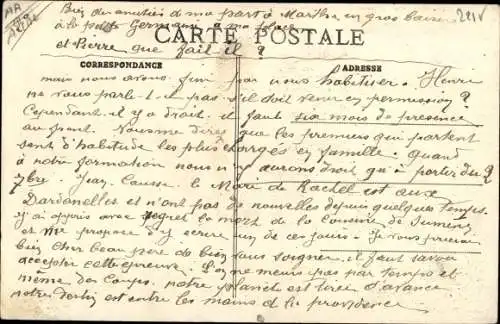 Bien des amitiés de ma part à Marthe, un gros baiser
à la petite Germaine à ma place
et Pierre que fait-il ?
CARTE POSTALE
CORRESPONDANCE
ADRESSE
mais nous avons fini par nous habituer. Henri
ne vous parle-t-il pas s'il doit venir en permission ?
Cependant il y a droit, il faut six mois de présence
au front. Vous me direz que les premiers qui partent
sont d'habitude les plus chargés en famille. Quand
à notre formation nous n'y aurons droit qu'à partir du 2
7bre. Jean Causse le Mari de Rachel est aux
Dardanelles et n'ont pas de nouvelles depuis quelques temps.
J'ai appris avec regret la mort de la cousine de
et me propose d'y écrire un de ces jours. Je vous
bien cher beau père de bien vous soigner, il faut savoir
accepter cette épreuve. L'on ne meurt pas par temps et
même des coups, notre planète est tirée d'avance
notre destin est entre les mains de la providence